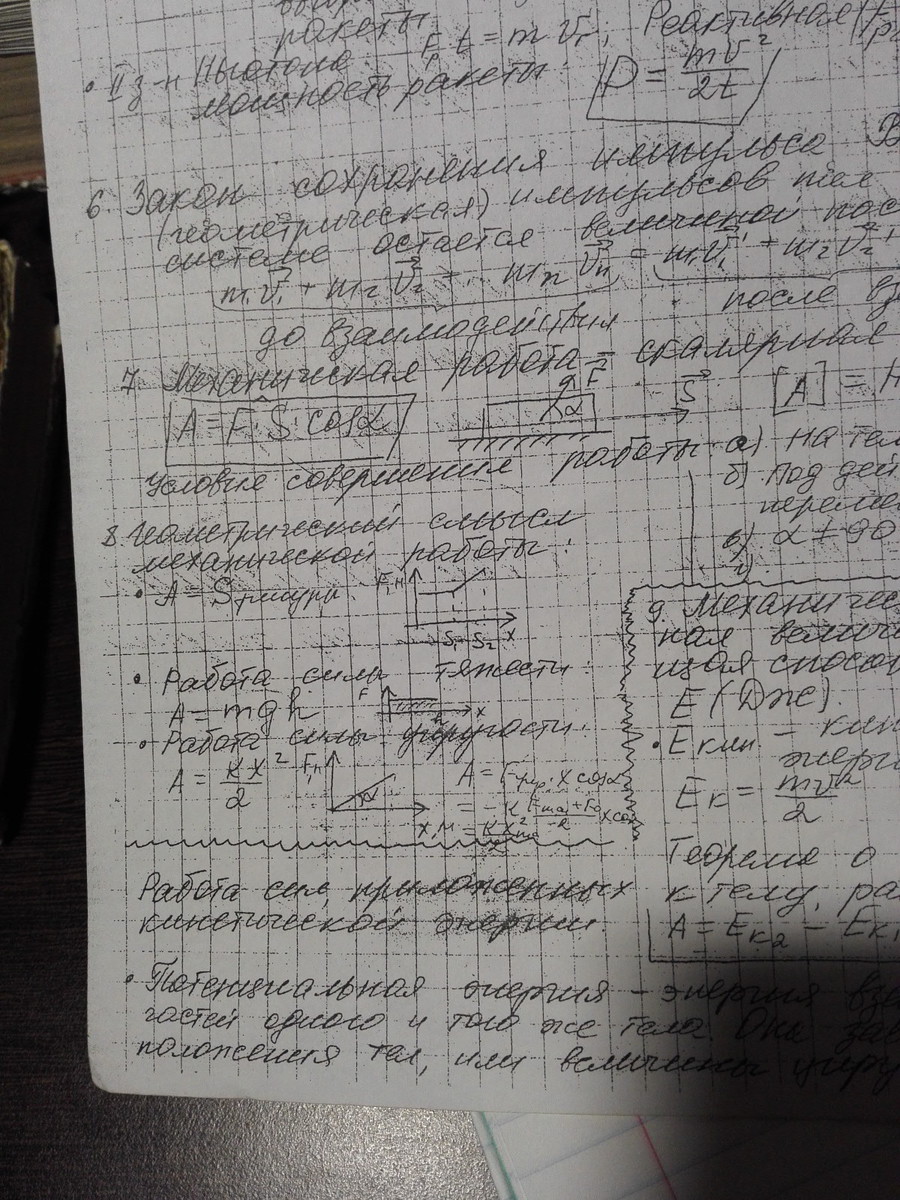 ракеты
• II з-н Ньютона F t = m v, Реактивная
мощность ракеты: P = mv²/2t
6. Закон сохранения импульса
(геометрическая) импульсов тел
системе остается величиной пос
m₁v⃗₁ + m₂v⃗₂ + mₙv⃗ₙ = m₁v⃗₁' + m₂v⃗₂'
до взаимодействия
после вз
7 Механическая работа = скалярная
A = F·S·cosα
F⃗
α
S⃗
[A] = Н
Условие совершения работы: а) На тел
б) Под дей
переме
в) α ≠ 90
8. Геометрический смысл
механической работы:
• A = Sфигуры
F, Н
S₁ S₂ x
• Работа силы тяжести:
A = mgh
F
x
• Работа силы упругости:
A = kx²/2
F, Н
α
x, м
A = Fупр. x cosα
9. Механичес
ная величи
щая способ
E (Дж).
• Eкин. – кин
энерги
Eк = mv²/2
Теорема о
к телу, ра
A = Eк₂ – Eк₁
Работа сил, приложенных
кинетической энергии
• Потенциальная энергия – энергия вза
частей одного и того же тела. Она зав
положения тел, или величины упру